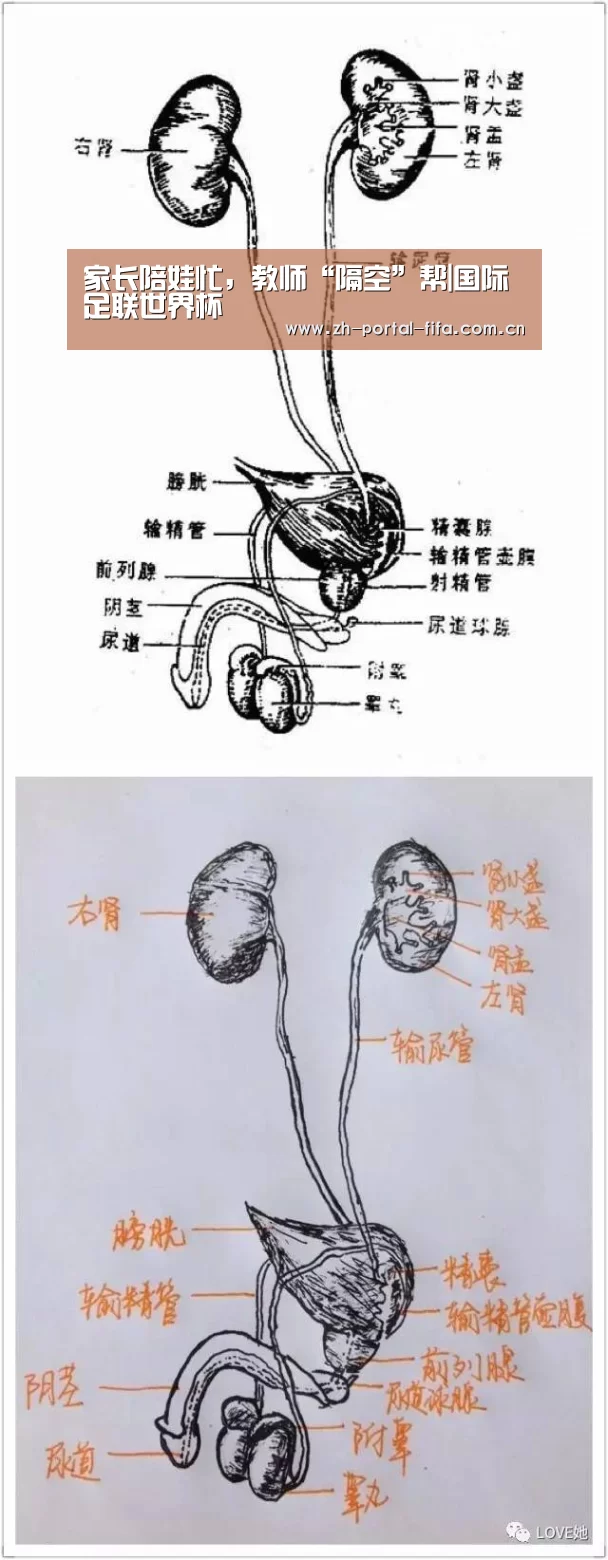 肾小盏
肾大盏
肾盂
左肾
右肾
家长陪娃忙，教师“隔空”帮|国际
足联世界杯
www.zh-portal-fifa.com.cn
膀胱
输精管
前列腺
阴茎
尿道
精囊腺
输精管壶腹
射精管
尿道球腺
附睾
睾丸
肾小盏
肾大盏
肾盂
左肾
右肾
输尿管
膀胱
输精管
阴茎
尿道
精囊
输精管壶腹
前列腺
尿道球腺
附睾
睾丸
LOVE她